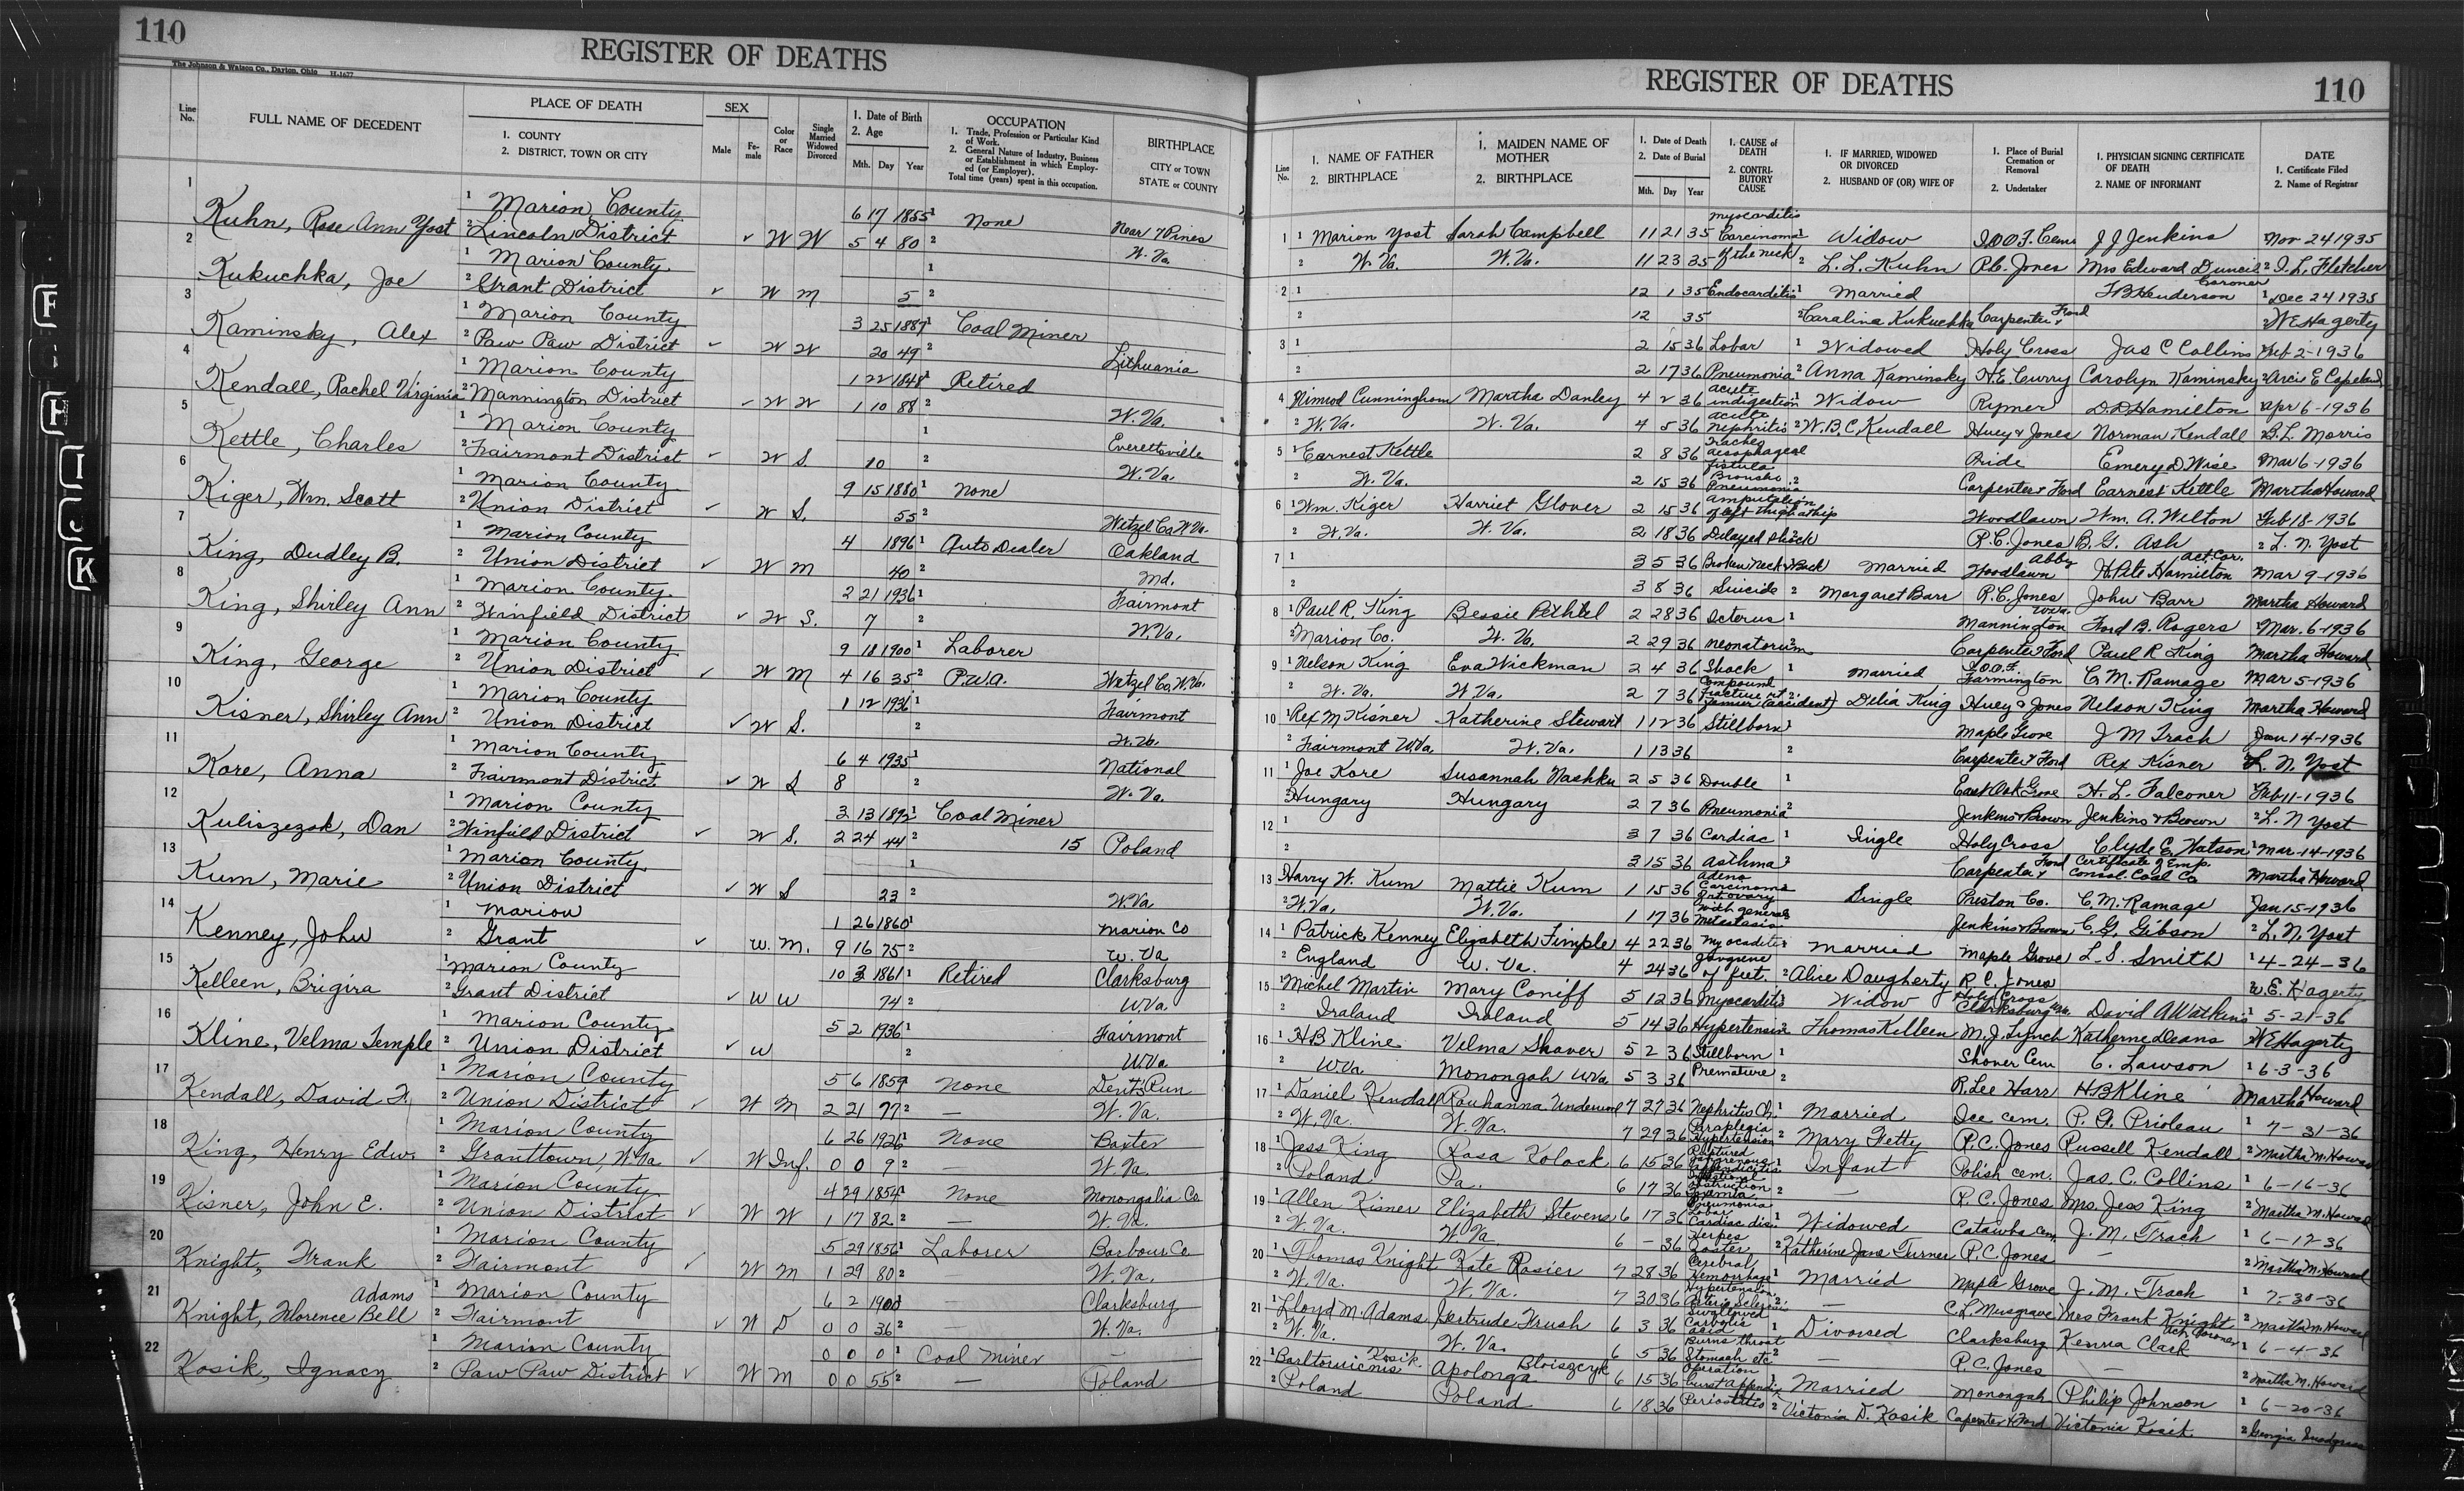 110
REGISTER OF DEATHS
The Johnson & Watson Co., Dayton, Ohio H-1677
Line No.
FULL NAME OF DECEDENT
PLACE OF DEATH
1. COUNTY
2. DISTRICT, TOWN OR CITY
SEX
Male
Female
Color or Race
Single Married Widowed Divorced
1. Date of Birth
2. Age
Mth. Day Year
OCCUPATION
1. Trade, Profession or Particular Kind of Work.
2. General Nature of Industry, Business or Establishment in which Employed (or Employer).
Total time (years) spent in this occupation.
BIRTHPLACE
CITY or TOWN
STATE or COUNTY
1 Kuhn, Rose Ann Yost 1 Marion County 6 17 1855 1 None Near 7 Pines
2 Lincoln District ✓ W W 5 4 80 2 W. Va.
2 Kukuchka, Joe 1 Marion County 1
2 Grant District ✓ W M 5 2
3 Kaminsky, Alex 1 Marion County 3 25 1887 1 Coal Miner
2 Paw Paw District ✓ W W 20 49 2 Lithuania
4 Kendall, Rachel Virginia 1 Marion County 1 22 1848 1 Retired
2 Mannington District ✓ W W 1 10 88 2 W. Va.
5 Kettle, Charles 1 Marion County 1 Everettsville
2 Fairmont District ✓ W S. 10 2 W. Va.
6 Kiger, Wm. Scott 1 Marion County 9 15 1880 1 None
2 Union District ✓ W S. 55 2 Wetzel Co. W. Va.
7 King, Dudley B. 1 Marion County 4 1896 1 Auto Dealer Oakland
2 Union District ✓ W M 40 2 Md.
8 King, Shirley Ann 1 Marion County 2 21 1936 1 Fairmont
2 Winfield District ✓ W S. 7 2 W. Va.
9 King, George 1 Marion County 9 18 1900 1 Laborer
2 Union District ✓ W M 4 16 35 2 P.W.A. Wetzel Co. W. Va.
10 Kisner, Shirley Ann 1 Marion County 1 12 1936 1 Fairmont
2 Union District ✓ W S. 2 W. Va.
11 Kore, Anna 1 Marion County 6 4 1935 1 National
2 Fairmont District ✓ W S 8 2 W. Va.
12 Kuliszezak, Dan 1 Marion County 3 13 1892 1 Coal Miner
2 Winfield District ✓ W S. 2 24 44 2 15 Poland
13 Kum, Marie 1 Marion County 1
2 Union District ✓ W S 23 2 W Va
14 Kenney, John 1 Marion 1 26 1860 1 Marion Co
2 Grant ✓ W. M. 9 16 75 2 W. Va
15 Kelleen, Brigira 1 Marion County 10 3 1861 1 Retired Clarksburg
2 Grant District ✓ W W 74 2 W Va.
16 Kline, Velma Temple 1 Marion County 5 2 1936 1 Fairmont
2 Union District ✓ W 2 W Va.
17 Kendall, David F. 1 Marion County 5 6 1859 None Dents Run
2 Union District ✓ W M 2 21 77 2 — W. Va.
18 King, Henry Edw. 1 Marion County 6 26 1926 1 None Baxter
2 Granttown, W. Va ✓ W Inf. 0 0 9 2 — W. Va.
19 Kisner, John E. 1 Marion County 4 29 1854 1 None Monongalia Co
2 Union District ✓ W W 1 17 82 2 — W. Va.
20 Knight, Frank 1 Marion County 5 29 1856 1 Laborer Barbour Co
2 Fairmont ✓ W M 1 29 80 2 — W. Va.
21 Knight, Florence Bell Adams 1 Marion County 6 2 1900 1 — Clarksburg
2 Fairmont ✓ W D 0 0 36 2 — W. Va.
22 Kosik, Ignacy 1 Marion County 0 0 0 1 Coal Miner —
2 Paw Paw District ✓ W M 0 0 55 2 — Poland
REGISTER OF DEATHS
110
Line No.
1. NAME OF FATHER
2. BIRTHPLACE
1. MAIDEN NAME OF MOTHER
2. BIRTHPLACE
1. Date of Death
2. Date of Burial
Mth. Day Year
1. CAUSE of DEATH
2. CONTRIBUTORY CAUSE
1. IF MARRIED, WIDOWED OR DIVORCED
2. HUSBAND OF (OR) WIFE OF
1. Place of Burial Cremation or Removal
2. Undertaker
1. PHYSICIAN SIGNING CERTIFICATE OF DEATH
2. NAME OF INFORMANT
DATE
1. Certificate Filed
2. Name of Registrar
1 1 Marion Yost Sarah Campbell 11 21 35 Myocarditis Carcinoma 1 Widow I.O.O.F. Cem J J Jenkins Nov 24 1935
2 W. Va. W. Va. 11 23 35 of the neck 2 L. L. Kuhn R.C. Jones Mrs Edward Duncil 2 I. L. Fletcher
2 1 12 1 35 Endocarditis 1 Married F B Henderson Coroner 1 Dec 24 1935
2 12 35 2 Caralina Kukuchka Carpenter & Ford 2 W E Hagerty
3 1 2 15 36 Lobar 1 Widowed Holy Cross Jas C Collins Feb 2-1936
2 2 17 36 Pneumonia 2 Anna Kaminsky H.E. Curry Carolyn Kaminsky 2 Arcie E Copeland
4 Nimrod Cunningham Martha Danley 4 2 36 acute indigestion 1 Widow Rymer D D Hamilton Apr 6-1936
2 W. Va. W. Va. 4 5 36 acute nephritis 2 W. B. C. Kendall Huey & Jones Norman Kendall B. L. Morris
5 1 Earnest Kettle 2 8 36 Tracheo aesophageal fistula Pride Emery D Wise Mar 6-1936
2 W. Va. 2 15 36 Broncho Pneumonia 2 Carpenter & Ford Earnest Kettle Martha Howard
6 1 Wm. Kiger Harriet Glover 2 15 36 amputation of left thigh & hip Woodlawn Wm. A. Welton Feb 18-1936
2 W. Va. W. Va. 2 18 36 Delayed shock R.C. Jones B. G. Ash 2 L. N. Yost
7 1 3 5 36 Broken Neck & Back Married Woodlawn Abby H. Pete Hamilton Act. Cor. Mar 9-1936
2 3 8 36 Suicide 2 Margaret Barr R. C. Jones John Barr Martha Howard
8 1 Paul R. King Bessie Pichtel 2 28 36 Icterus 1 Mannington W.Va. Ford B. Rogers Mar. 6-1936
2 Marion Co. W. Va. 2 29 36 neonatorum 2 Carpenter & Ford Paul R King Martha Howard
9 1 Nelson King Eva Wickman 2 4 36 Shock 1 Married I.O.O.F. Farmington C. M. Ramage Mar 5-1936
2 W. Va. W Va. 2 7 36 Compound fracture rt femur (accident) Delia King Huey & Jones Nelson King Martha Howard
10 1 Rex M Kisner Katherine Stewart 1 12 36 Stillborn 1 Maple Grove J M Trach Jan 14-1936
2 Fairmont W. Va. W. Va. 1 13 36 2 Carpenter & Ford Rex Kisner L. N. Yost
11 1 Joe Kore Susannah Nashku 2 5 36 Double 1 East Oak Grove H. L. Falconer Feb 11-1936
2 Hungary Hungary 2 7 36 Pneumonia 2 Jenkins & Brown Jenkins & Brown 2 L. N Yost
12 1 3 7 36 Cardiac 1 Single Holy Cross Clyde E. Watson 1 Mar-14-1936
2 3 15 36 Asthma 2 Carpenter & Ford Certificate of Emp. Consol. Coal Co Martha Howard
13 Harry W. Kum Mattie Kum 1 15 36 Adeno Carcinoma Single Preston Co. C. M. Ramage Jan 15-1936
2 W. Va. W. Va. 1 17 36 Rt. ovary with general metastasis Jenkins & Brown C. G. Gibson 2 L. N. Yost
14 1 Patrick Kenney Elizabeth Timple 4 22 36 Myocaditis Married Maple Grove L. S. Smith 1 4-24-36
2 England W. Va. 4 24 36 Gangrene of feet 2 Alice Daugherty R. C. Jones W. E. Hagerty
15 1 Michel Martin Mary Coniff 5 12 36 Myocarditis Widow Holy Cross Clarksburg David A Watkins 1 5-21-36
2 Iraland Iraland 5 14 36 Hypertension 2 Thomas Killeen M. J. Lynch Katherne Deans W E Hagerty
16 1 H B Kline Velma Shaver 5 2 36 Stillborn 1 Shaver Cem C. Lawson 1 6-3-36
2 W Va Monongah W Va 5 3 36 Premature 2 R. Lee Harr H B Kline Martha Howard
17 1 Daniel Kendall Rouhanna Underwood 7 27 36 Nephritis Ch. 1 Married Ice cem. P. G. Prioleau 1 7-31-36
2 W. Va. W. Va. 7 29 36 Paraplegia Hypertension 2 Mary Fetty R.C. Jones Russell Kendall 2 Martha M. Howard
18 1 Jess King Rosa Kolock 6 15 36 Ruptured gangrenous appendicitis 1 Infant Polish cem. Jas. C. Collins 1 6-16-36
2 Poland Pa. 6 17 36 2 — R. C. Jones Mrs. Jess King 2 Martha M. Howard
19 1 Allen Kisner Elizabeth Stevens 6 17 36 Pneumonia Lobar Cardiac dis. 1 Widowed Catawba cem. J. M. Trach 1 6-17-36
2 W. Va. W. Va. 6 — 36 Herpes Zoster 2 Katherine Jane Turner R. C. Jones — 2 Martha M. Howard
20 1 Thomas Knight Kate Rosier 7 28 36 Cerebral Hemorrhage 1 Married Maple Grove J. M. Trach 1 7-30-36
2 W. Va. W. Va. 7 30 36 Hypertension 2 — C. L. Musgrave Mrs Frank Knight 2 Martha M. Howard
21 1 Lloyd M. Adams Gertrude Frush 6 3 36 Swallowed Carbolic acid 1 Divorsed Clarksburg Kenna Clark 1 6-4-36
2 W. Va. W. Va. 6 5 36 Burns throat Stomach etc 2 — R.C. Jones 2 Martha M. Howard
22 1 Kosik Apolonga Bloiszczyk 6 15 36 Operation burst appendix 1 Married Monongah Philip Johnson 1 6-20-36
2 Poland Poland 6 18 36 2 Victoria D. Kosik Capenter & Ford Victoria Kosik 2 Georgia Snodgrass